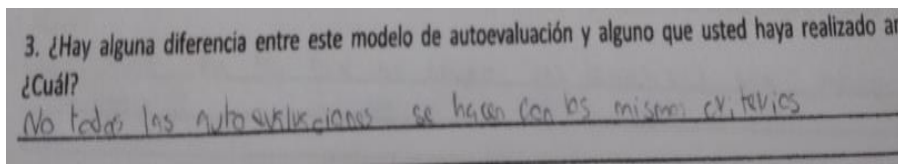 3. ¿Hay alguna diferencia entre este modelo de autoevaluación y alguno que usted haya realizado
¿Cuál?
No todas las autoevaluciones se hacen con los mismo criterios